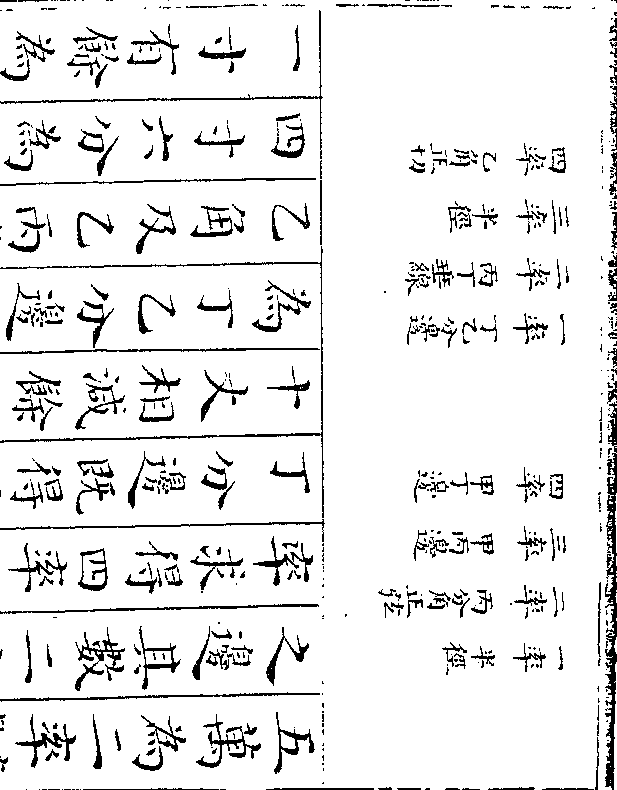 一率 半徑
二率 丙分角正弦
三率 甲丙邊
四率 甲丁邊
一率 丁乙分邊
二率 丙丁垂線
三率 半徑
四率 乙角正切
五萬為二率
之邊其數二
率求得四率
丁分邊既得
十丈相減餘
為丁乙分邊
乙角及乙丙
四寸六分為
一寸有餘為